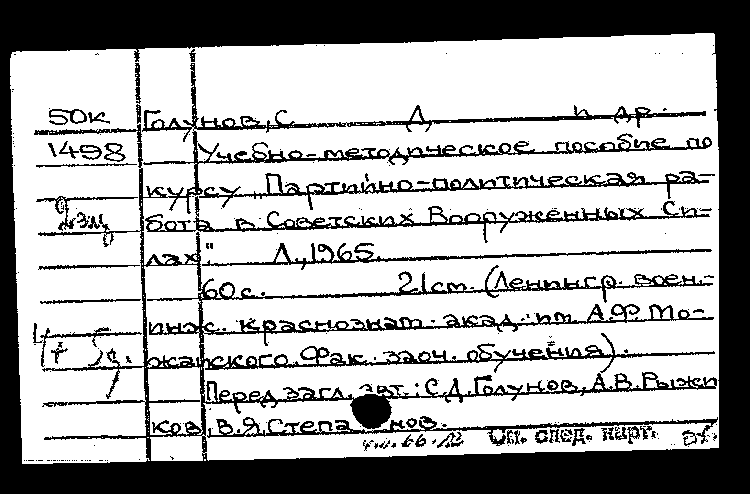 50к Голунов, С. Д. и др.
1498 Учебно-методическое пособие по
курсу „Партийно-политическая ра-
бота в Советских Вооруженных Си-
лах". Л., 1965.
60 с. 21 см. (Ленингр. воен.-
инж. краснознам. акад. им. А.Ф. Мо-
жайского. Фак. заоч. обучения).
Перед загл. авт.: С.Д. Голунов, А.В. Рыжи
ков, В.Я. Степанов.
66 См. след. карт.